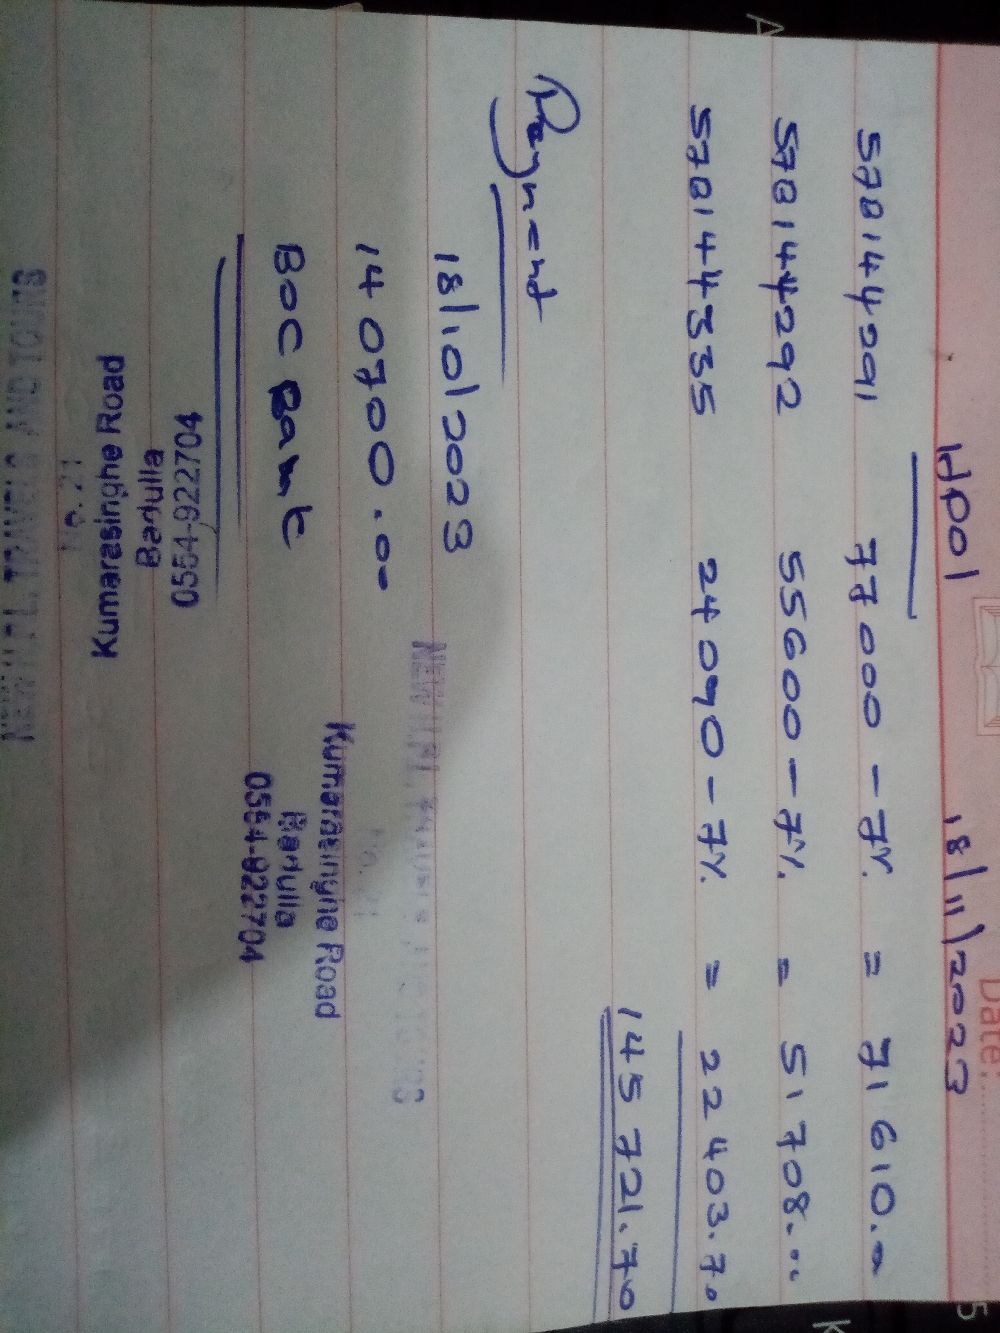 Date:
HP01 18/11/2023
578144291 77000 - 7% = 71610.00
578144292 55600 - 7% = 51708.00
578144335 24090 - 7% = 22403.70
145721.70
Payment
18/10/2023
140700.00
BOC Bank
Kumarasinghe Road
Badulla
0554-922704
0554-922704
Badulla
Kumarasinghe Road
No. 21
TRAVELS AND TOURS